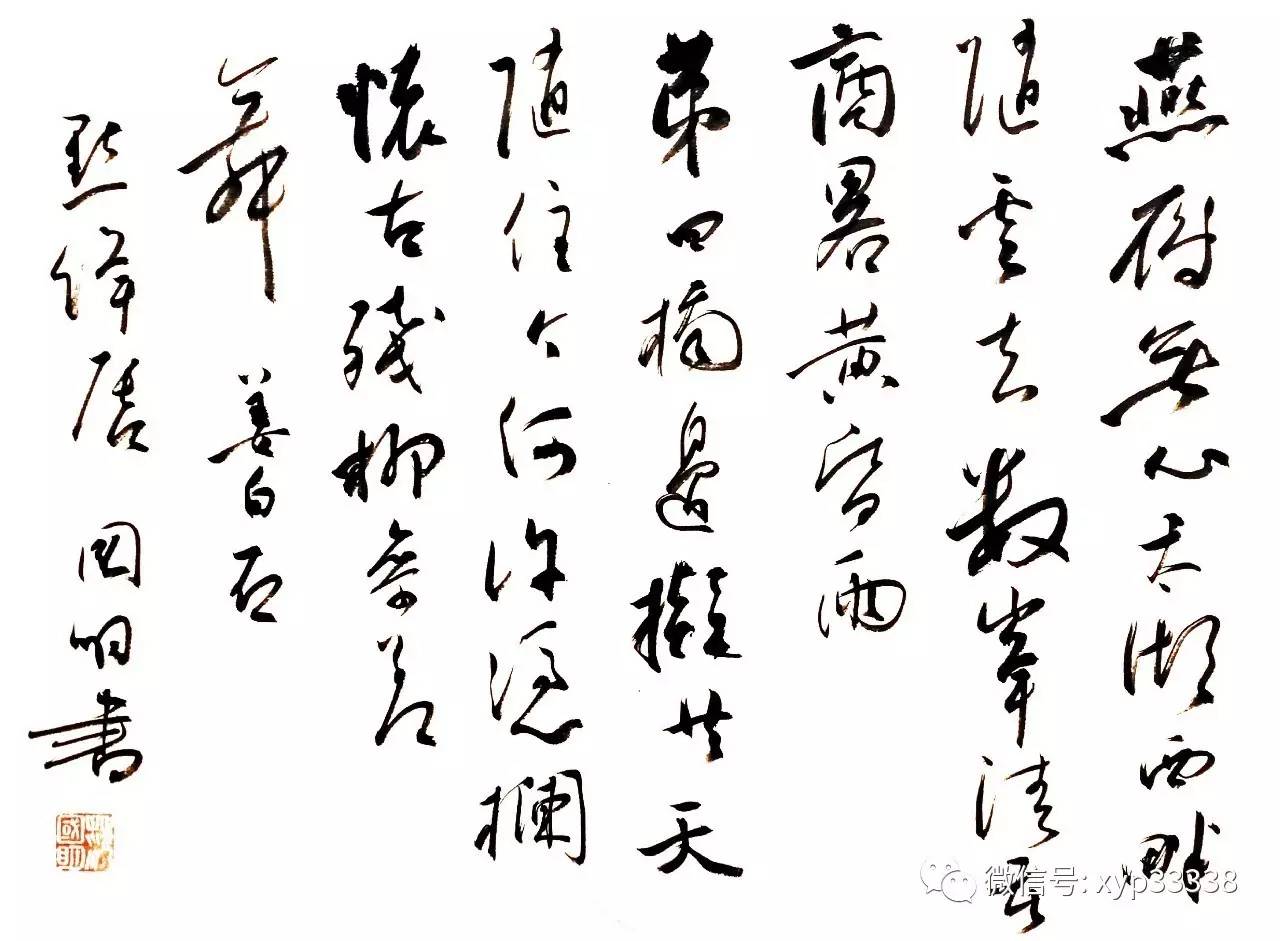 燕鴈無心太湖西畔
隨雲去數峯清苦
商畧黃昏雨
第四橋邊擬共天
隨住今何許憑欄
懷古殘柳參差
舞 姜白石
點絳唇 國明書
國明
微信号: xyp33338